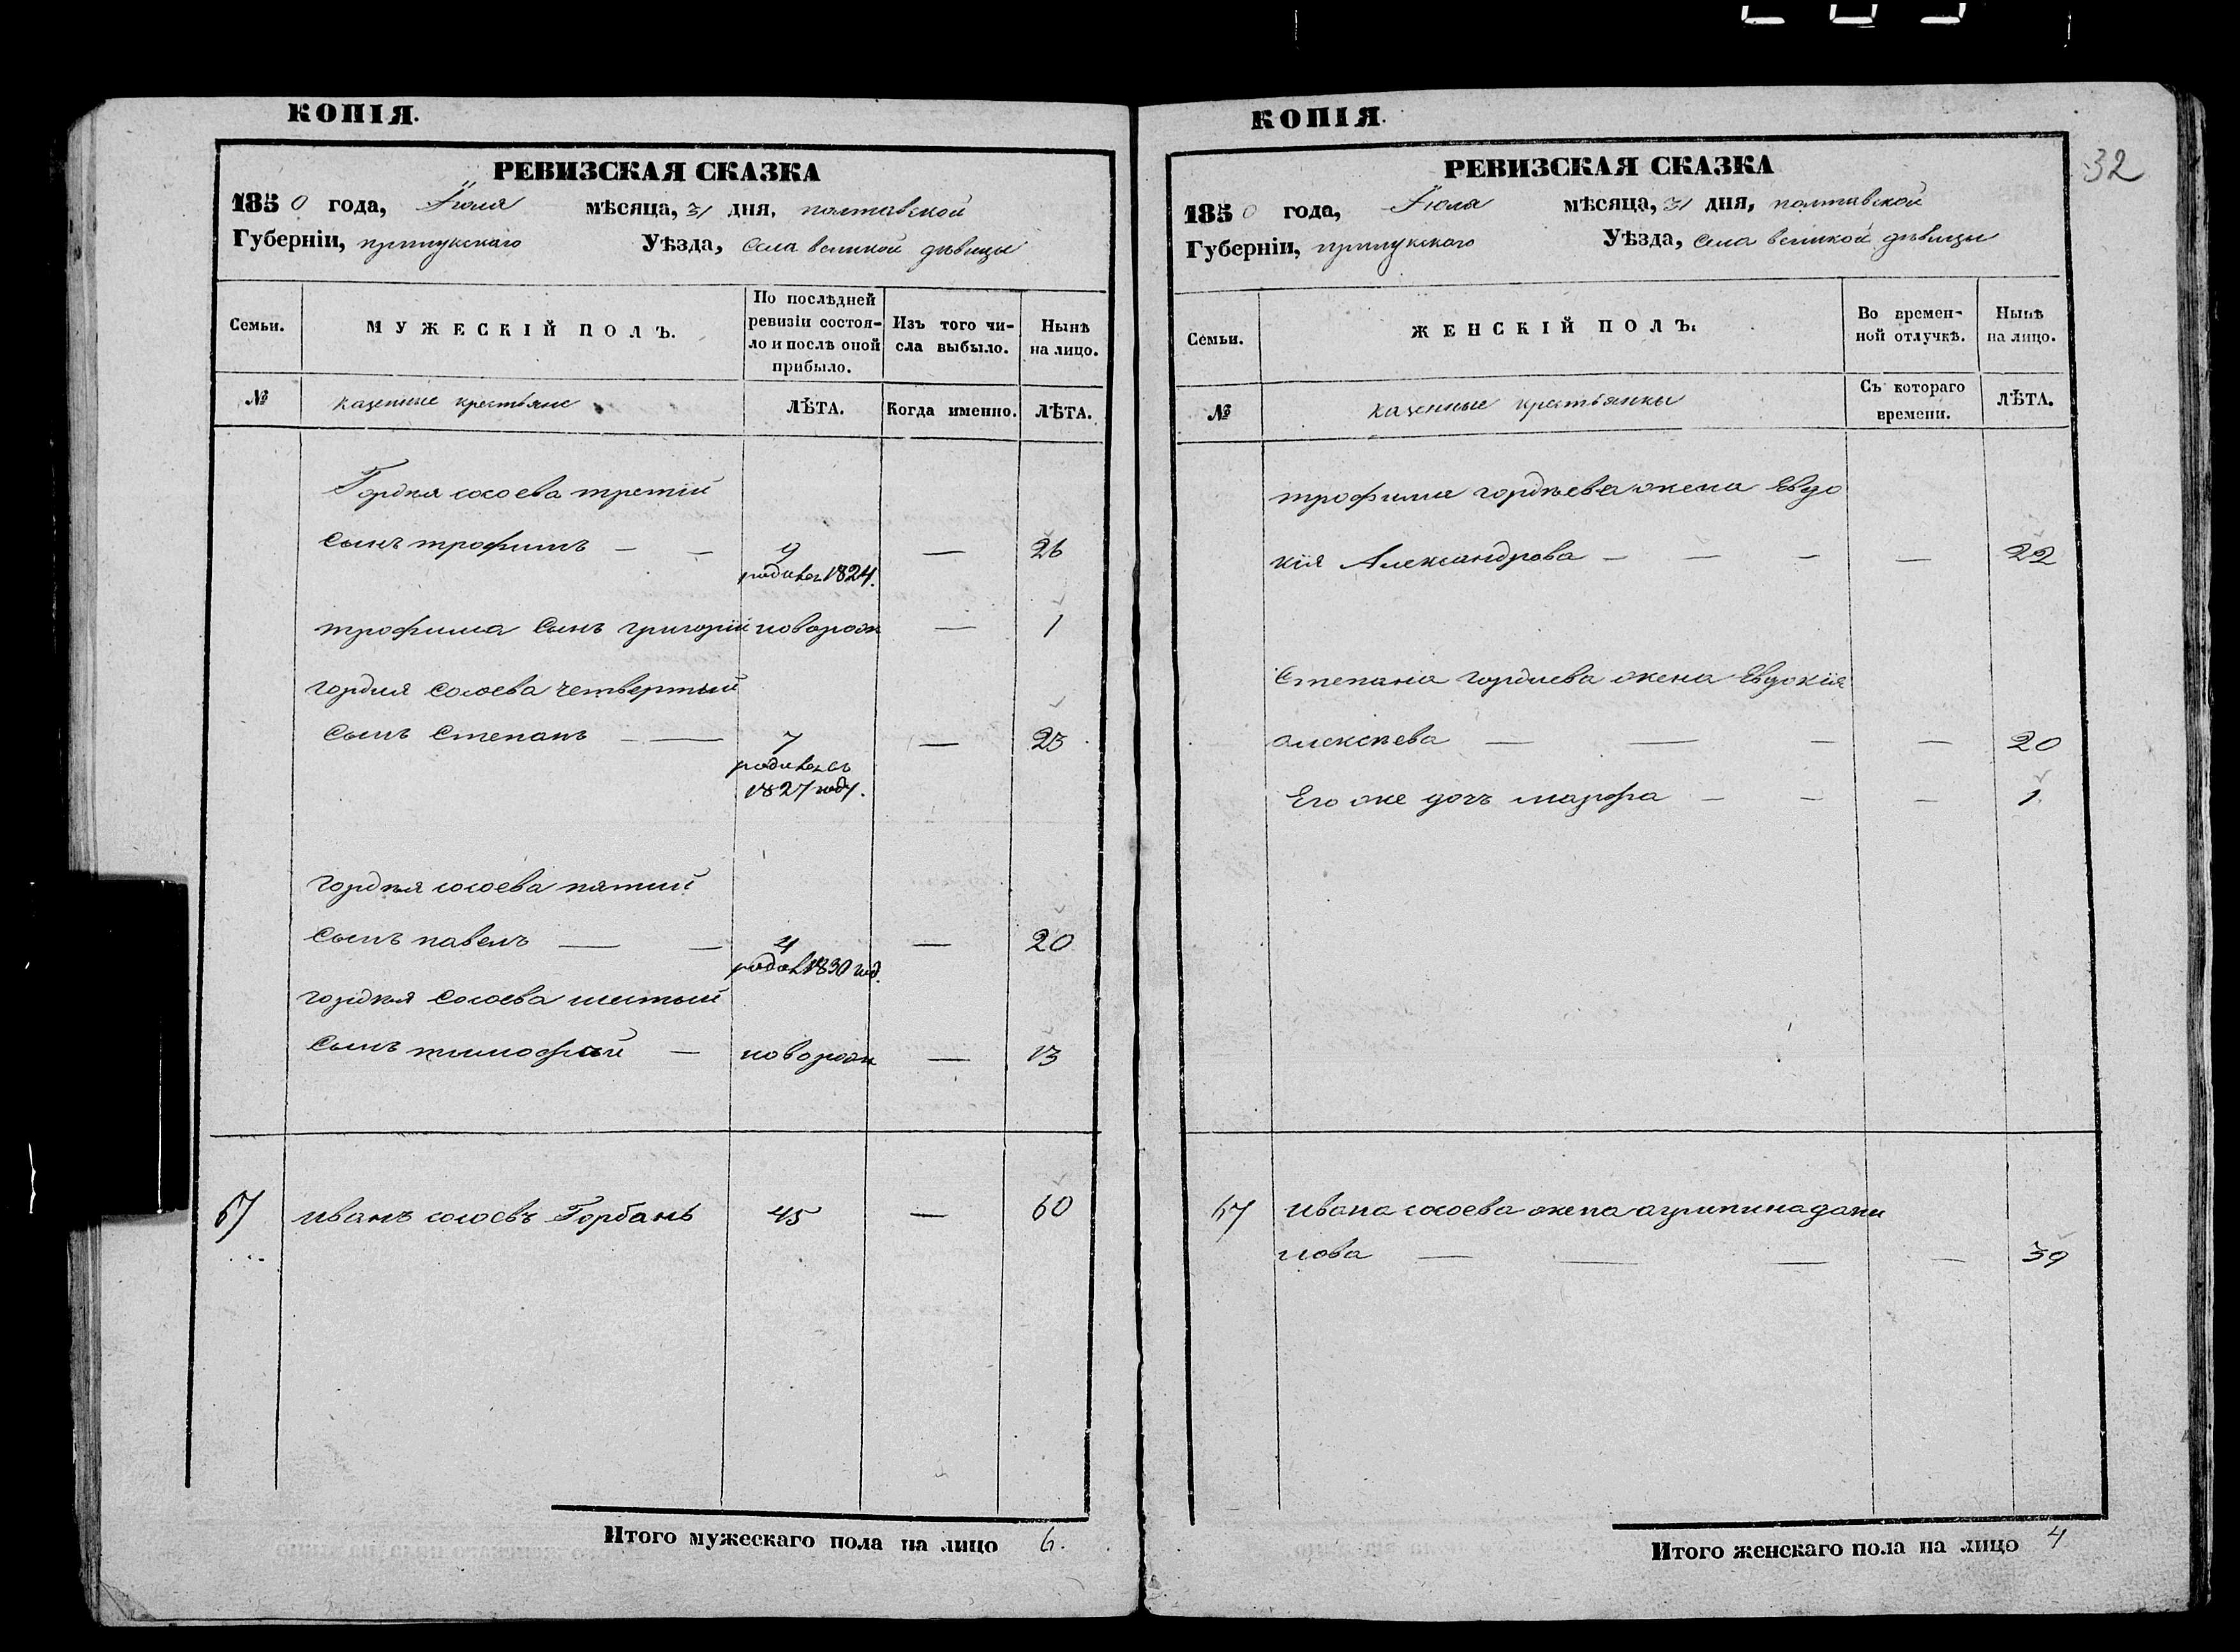 КОПІЯ.
РЕВИЗСКАЯ СКАЗКА
1850 года, Іюля мѣсяца, 31 дня, полтавской
Губерніи, прилукскаго Уѣзда, села великой дѣвицы
Семьи.
МУЖЕСКІЙ ПОЛЪ.
По послѣдней
ревизіи состоя-
ло и послѣ оной
прибыло.
Изъ того чи-
сла выбыло.
Нынѣ
на лицо.
№
казенные крестьяне
ЛѢТА.
Когда именно.
ЛѢТА.
Гордѣя сысоева третій
сынъ трофимъ — — 9 — 26
родивсь 1824.
трофима сынъ григорій новорож — 1
гордея сысоева четвертый
сынъ степанъ — — 7 — 23
родивсь
1827 году.
гордѣя сысоева пятий
сынъ павелъ — — 4 — 20
1830 год.
гордѣя сысоева шестый
сынъ тимофѣй — новорож — 13
67 иванъ сысоевъ Горбань 45 — 60
Итого мужескаго пола на лицо 6.
КОПІЯ.
32
РЕВИЗСКАЯ СКАЗКА
1850 года, Іюля мѣсяца, 31 дня, полтавской
Губерніи, прилукскаго Уѣзда, села великой дѣвицы
Семьи.
ЖЕНСКІЙ ПОЛЪ.
Во времен-
ной отлучкѣ.
Нынѣ
на лицо.
№
казенные крестьянки
Съ котораго
времени.
ЛѢТА.
трофима гордѣева жена Евдо
кія Александрова — — — — 22
степана гордиева жена Евдокія
алексѣева — — — — 20
Его же дочь марфа — — — 1
67 ивана сысоева жена агрипина дани
лова — — — — 39
Итого женскаго пола на лицо 4